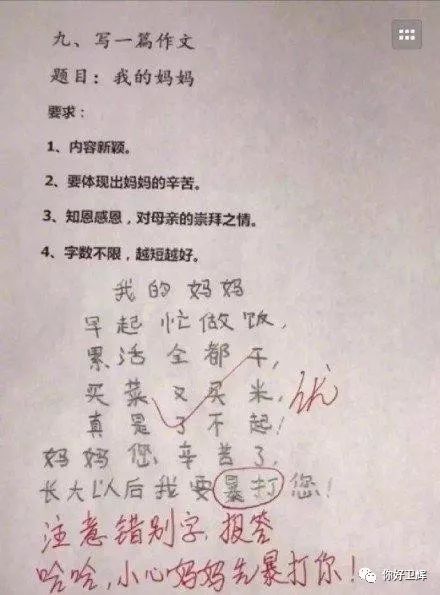 九、写一篇作文
题目：我的妈妈
要求：
1、内容新颖。
2、要体现出妈妈的辛苦。
3、知恩感恩，对母亲的崇拜之情。
4、字数不限，越短越好。
我的妈妈
早起忙做饭，
累活全都干，
买菜又买米，
优
真是了不起！
妈妈您辛苦了，
长大以后我要暴打您！
注意错别字，报答
哈哈，小心妈妈先暴打你！
你好卫辉